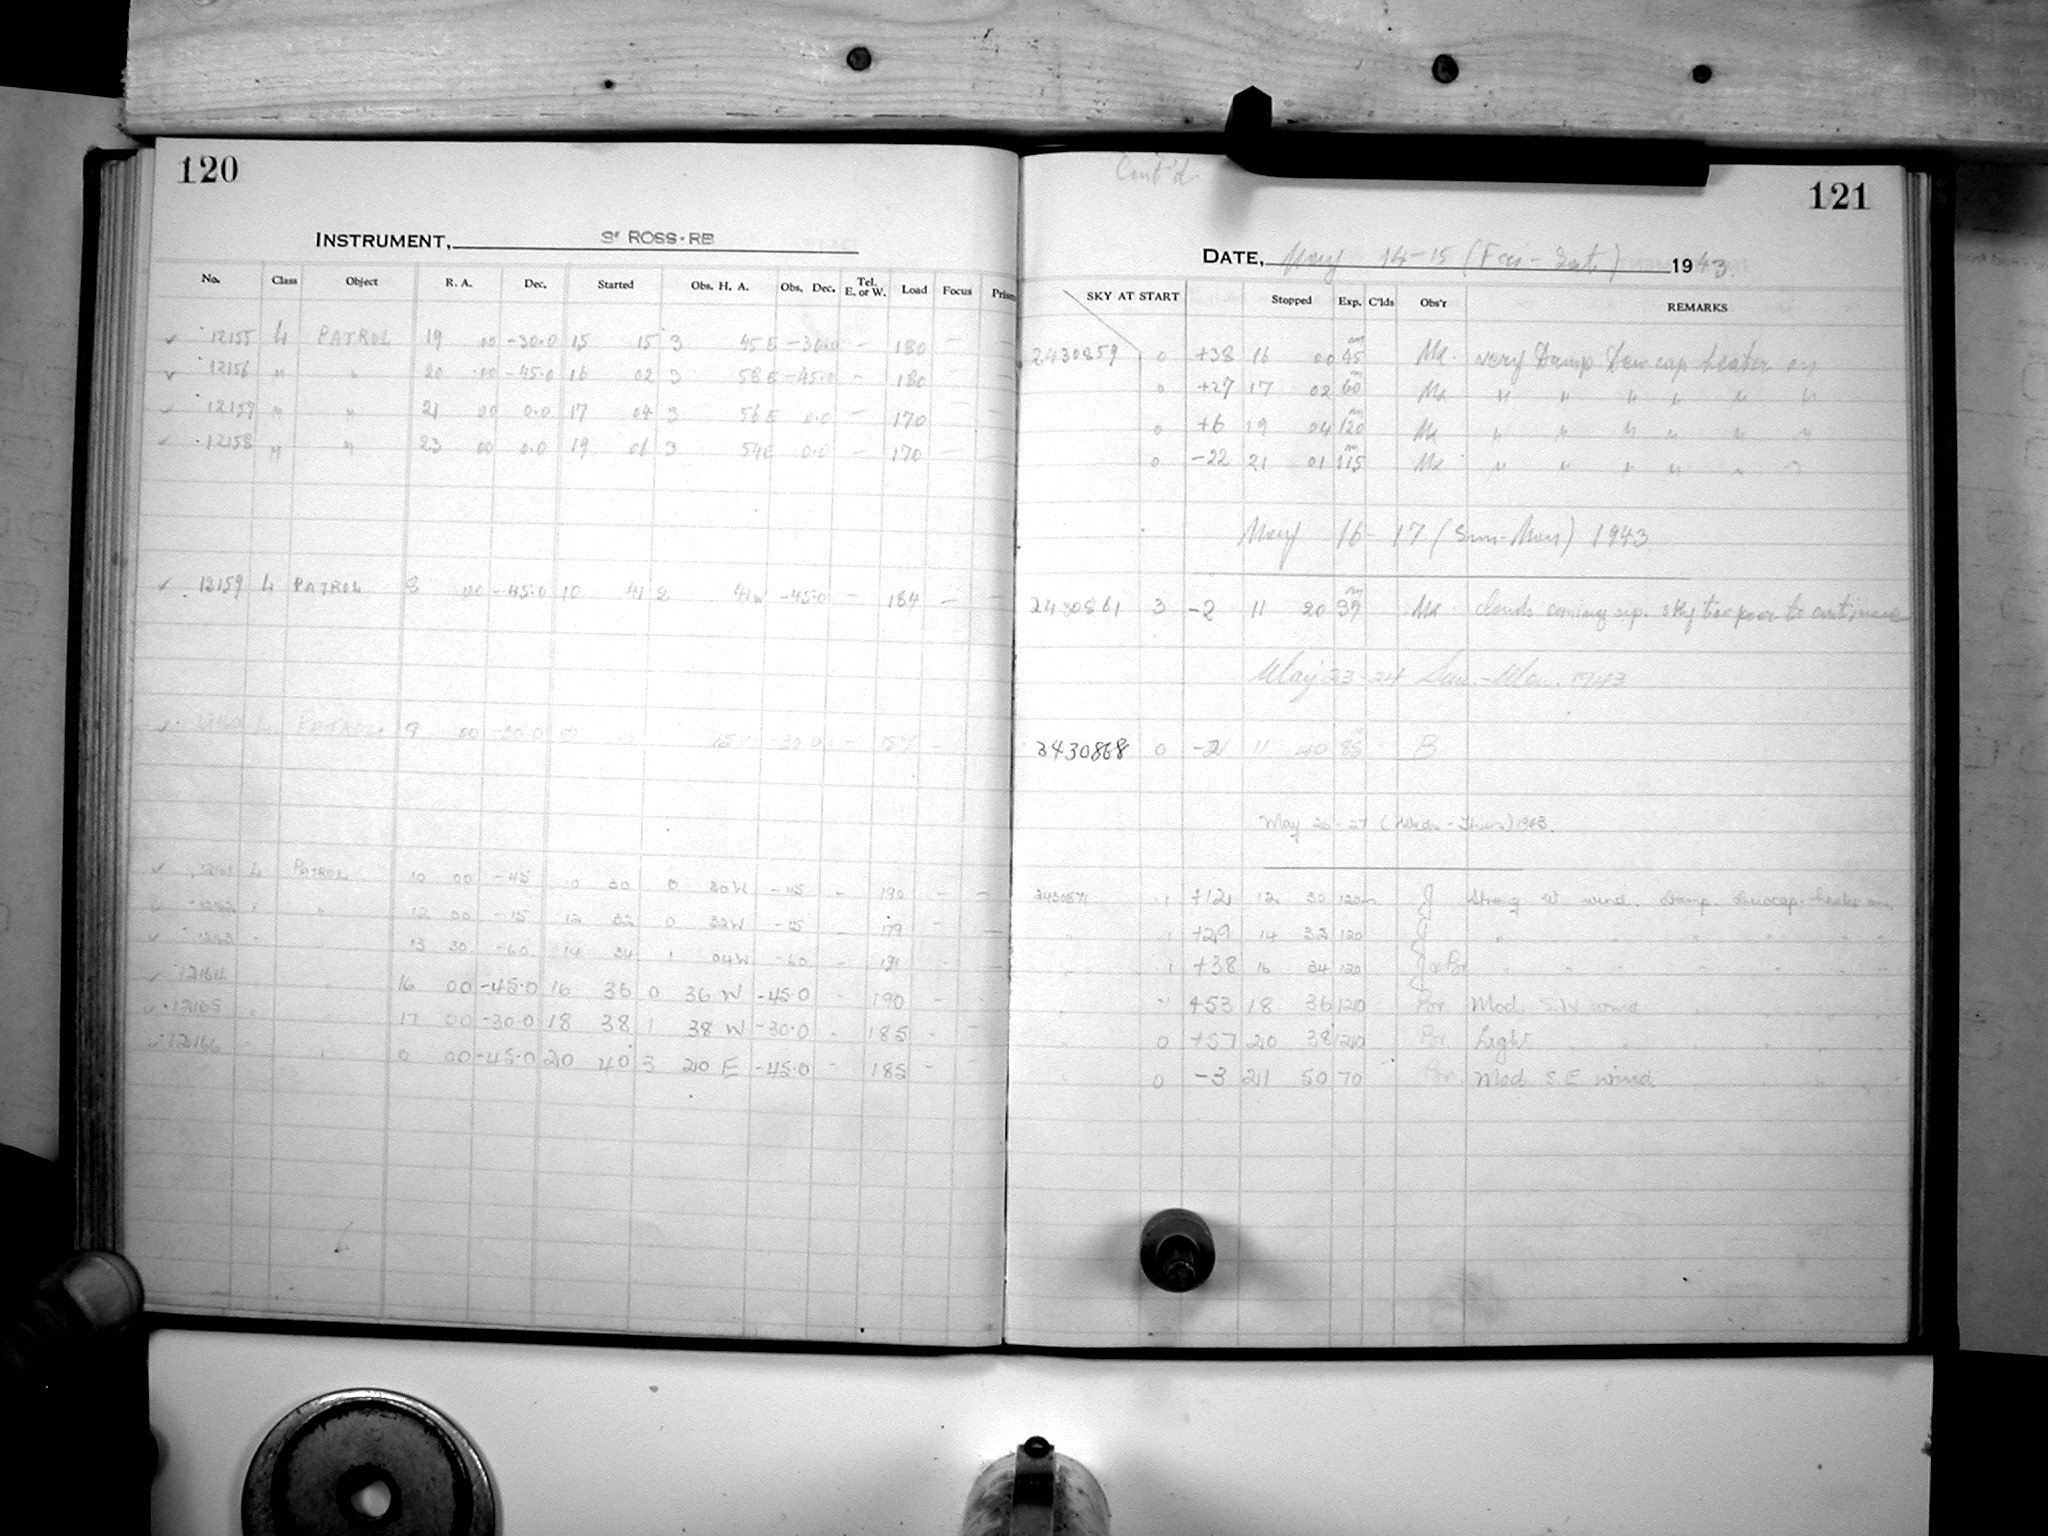 120
INSTRUMENT, Sr ROSS-RB
No. Class Object R. A. Dec. Started Obs. H. A. Obs. Dec. Tel. E. or W. Load Focus Prism
12155 L PATROL 19 00 -30.0 15 15 3 45 E -30.0 - 180 - -
12156 " " 20 00 -45.0 16 02 3 58 E -45.0 - 180 - -
12157 " " 21 00 0.0 17 04 3 56 E 0.0 - 170 - -
12158 " " 23 00 0.0 19 06 3 54 E 0.0 - 170 - -
12159 L PATROL 8 00 -45.0 10 41 2 41 W -45.0 - 184 - -
PATROL 9 00 -30.0 - 157 -
L PATROL 10 00 -45 10 30 0 30 W -45 - 190 - -
12 00 -15 12 32 0 32 W -15 - 179 - -
13 30 -60 14 34 1 04 W -60 - 191 - -
12164 16 00 -45.0 16 36 0 36 W -45.0 - 190 - -
12165 17 00 -30.0 18 38 1 38 W -30.0 - 185 - -
12166 0 00 -45.0 20 40 3 20 E -45.0 - 185 -
Cont'd
121
DATE, May 14-15 (Fri - Sat.) 1943.
SKY AT START Stopped Exp. C'lds Obs'r REMARKS
2430859 0 +38 16 00 45 m Mk. very Damp Dew cap heater on
0 +27 17 02 60 m Mk " " " " " "
0 +6 19 04 120 m Mk " " " " " "
0 -22 21 01 115 m Mk " " " " " "
May 16-17 (Sun-Mon) 1943
2430861 3 -2 11 20 39 m Mk clouds coming up. sky too poor to continue
May 23-24 Sun.-Mon. 1943
2430868 0 -21 11 40 85 B
May 26-27 (Weds-Thurs) 1943.
2430871 1 +12 12 30 120m J Strong W wind. damp. dewcap heater on
1 +29 14 32 120 J " " " " "
1 +38 16 34 120 J " " " " "
" +53 18 36 120 Por. Mod. S.W wind
0 +57 20 38 120 Por. Light " "
0 -3 21 50 70 Por. Mod. S.E. wind